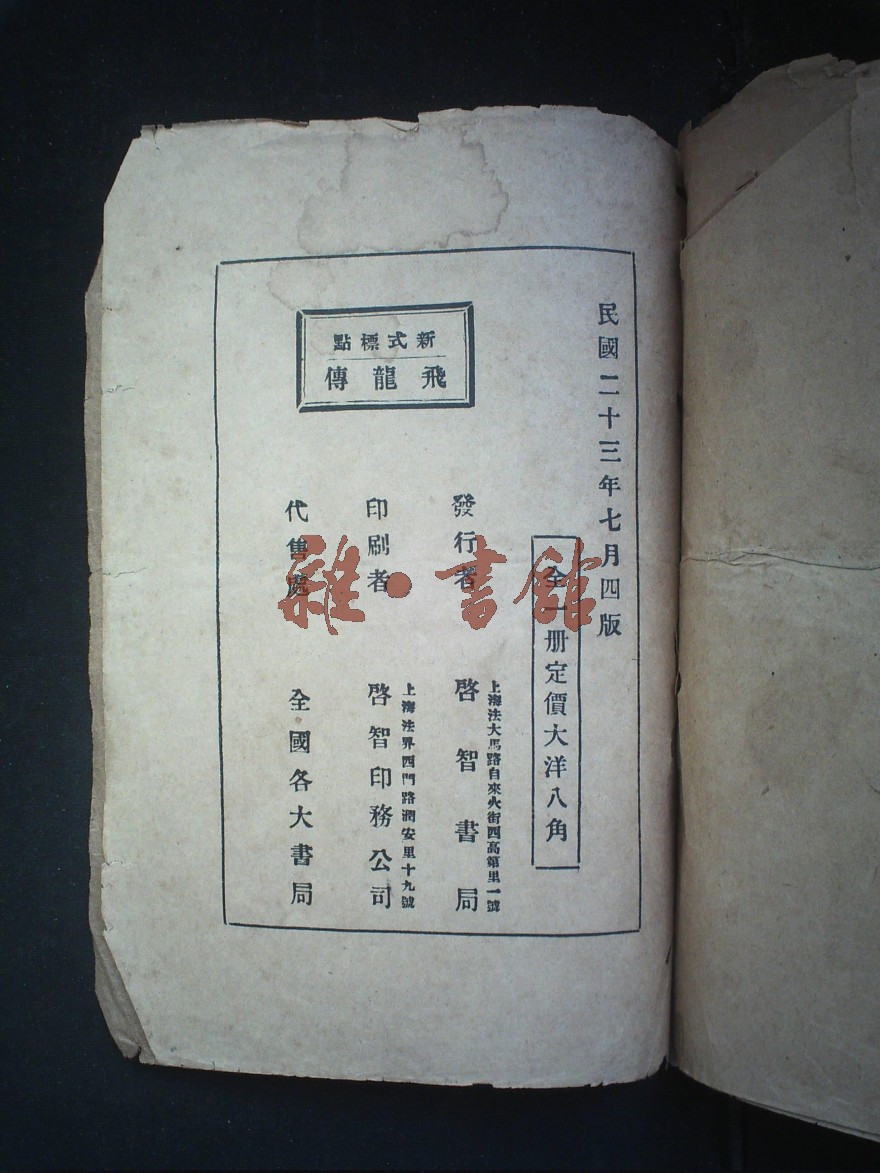 民國二十三年七月四版
全一册定價大洋八角
新式標點
飛龍傳
發行者
上海法大馬路自來火街西高第里一號
啓智書局
印刷者
上海法界西門路潤安里十九號
啓智印務公司
代售處
全國各大書局
雜·書館